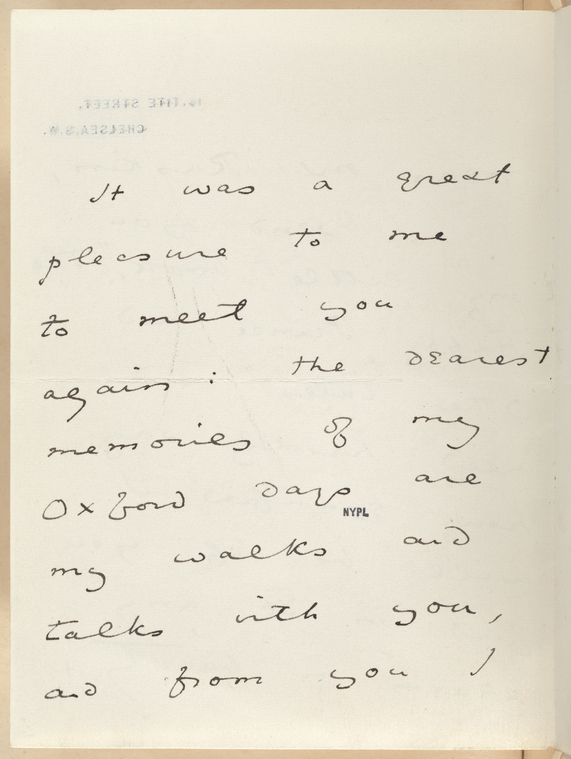 16, TITE STREET,
CHELSEA. S.W.
It was a great
pleasure to me
to meet you
again : the dearest
memories of my
Oxford days are
NYPL
my walks and
talks with you,
and from you I